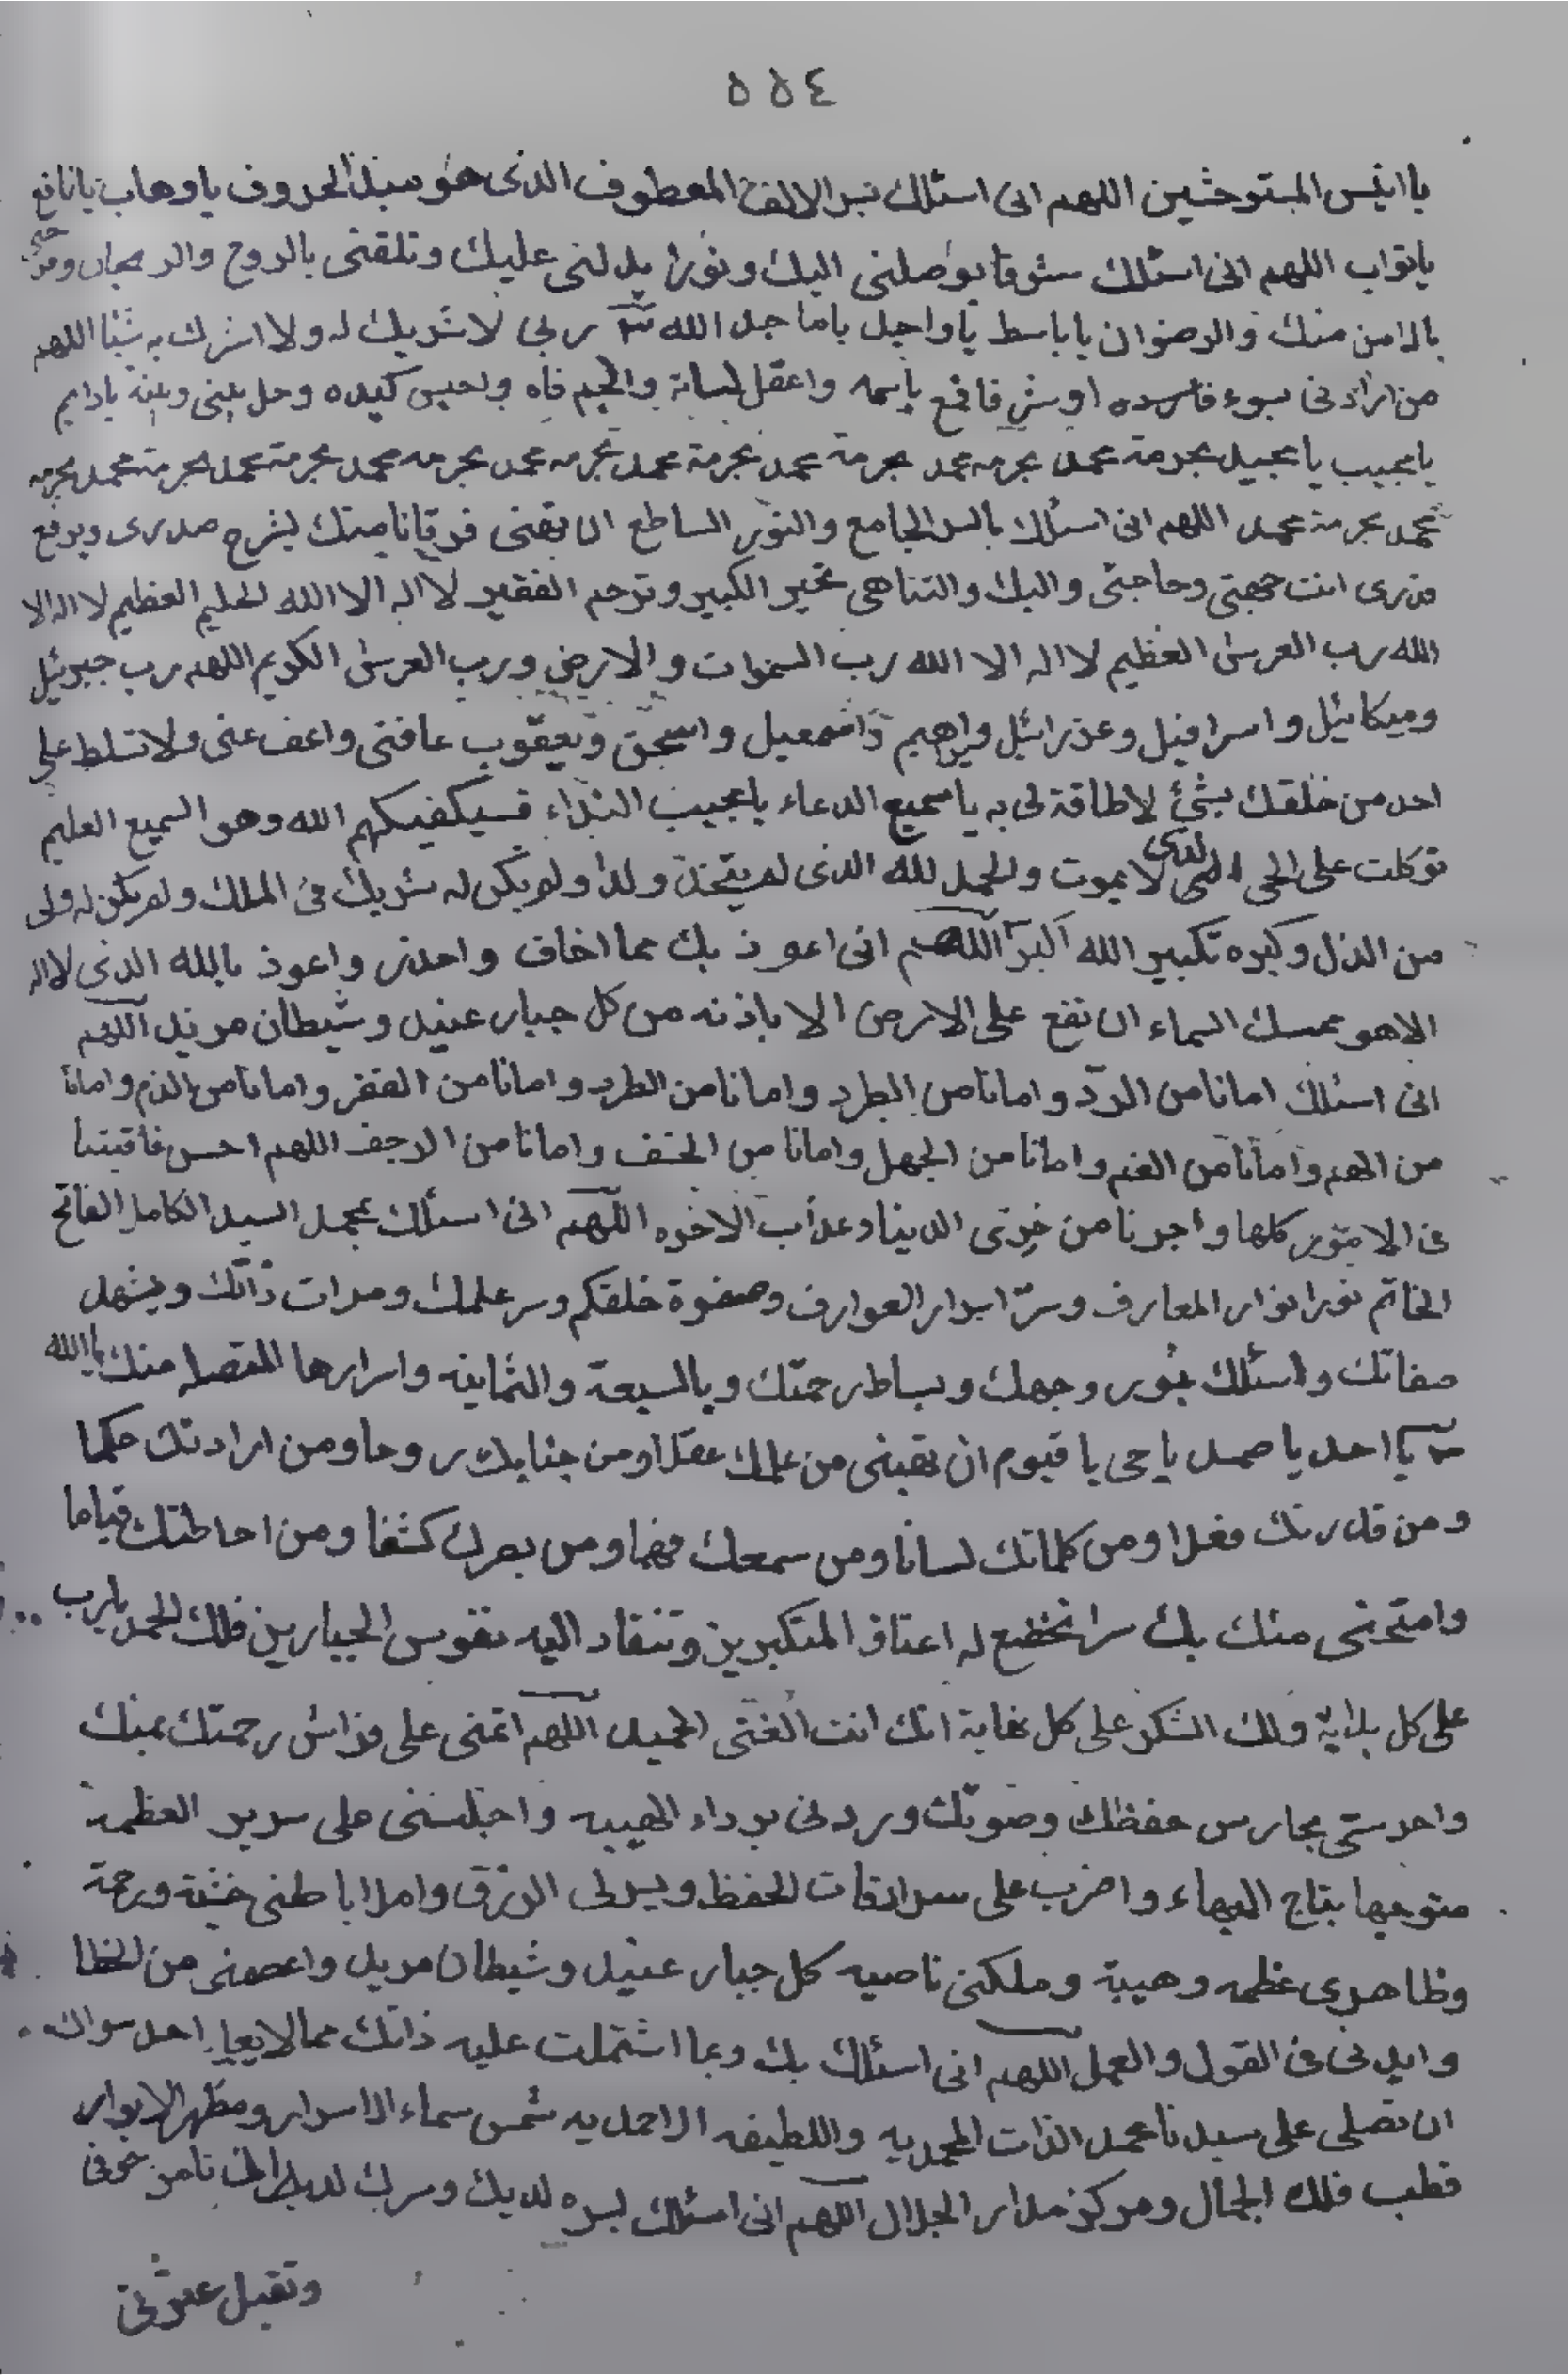 ٥٥٤
يا انيس المستوحشين اللهم انى اسئلك بسر الالف المعطوف الذى هو سيد الحروف يا وهاب يا نافع
يا تواب اللهم انى اسئلك شوقا يوصلنى اليك ونورا يدلنى عليك وتلقنى بالروح والريحان
بالامن منك والرضوان يا باسط يا واجد يا ماجد الله ربى لا شريك له ولا اشرك به شيئا اللهم
من ارادنى بسوء او شر فاقمع واعقل لسانه والجم فاه واحبس كيده وحل بينى وبينه يا دايم
يا مجيب يا مجيد بحرمة محمد بحرمه محمد بحرمة محمد بحرمة محمد بحرمه محمد بحرمه محمد بحرمة محمد بحرمة محمد بحرمه
محمد بحرمة محمد اللهم انى اسئلك بالسر الجامع والنور الساطع ان تهبنى فرقانا منك يشرح صدرى ويرفع
قدرى انت جهتى وحاجتى واليك والتناهى تجير الكبير وترحم الفقير لا اله الا الله الحليم العظيم لا اله الا
الله رب العرش العظيم لا اله الا الله رب السموات والارض ورب العرش الكريم اللهم رب جبرئيل
وميكائيل واسرافيل وعزرائيل وابرهيم واسمعيل واسحق ويعقوب عافنى واعف عنى ولا تسلط على
احد من خلقك بشئ لا طاقة لى به يا سميع الدعاء يا مجيب النداء فسيكفيكهم الله وهو السميع العليم
توكلت على الحى الذى لا يموت والحمد لله الذى لم يتخذ ولدا ولم يكن له شريك فى الملك ولم يكن له ولى
من الذل وكبره تكبير الله اكبر اللهم انى اعوذ بك مما اخاف واحذر واعوذ بالله الذى لا اله
الا هو ممسك السماء ان تقع على الارض الا باذنه من كل جبار عنيد وشيطان مريد اللهم
انى اسئلك امانا من الردّ وامانا من الطرد وامانا من الطرد وامانا من الفقر وامانا من الذم وامانا
من الهم وامانا من الغم وامانا من الجهل وامانا من الخسف وامانا من الرجف اللهم احسن عاقبتنا
فى الامور كلها واجرنا من خزى الدينا وعذاب الاخره اللهم انى اسئلك بمحمد السيد الكامل الفاتح
الخاتم نور انوار المعارف وسرّ اسرار العوارف وصفوة خلقكم وسر علمك ومرات ذاتك ومشهد
صفاتك واسئلك بنور وجهك وبساط رحمتك وبالسبعة والثمانيه واسرارها المتصله منك يا الله
يا احد يا صمد يا حى يا قيوم ان تهبنى من علمك عقلا ومن جنابك روحا ومن ارادتك حكما
ومن قدرتك فعلا ومن كلماتك لسانا ومن سمعك فهما ومن بصرك كشفا ومن احاطتك قياما
وامنحنى منك بك سرا تخضع له اعناق المتكبرين وتنقاد اليه نفوس الجبارين فلك الحمد يا رب
على كل بداية ولك الشكر على كل نهاية انك انت الغنى الحميد اللهم انمنى على فراش رحمتك بمنك
واحرسنى بحارس حفظك وصونك وردنى برداء الهيبه واجلسنى على سرير العظمة
متوجها بتاج البهاء واضرب على سرادقات الحفظ ويسر لى الرزق واملا باطنى خشية ورحمة
وظاهرى عظمه وهيبة وملكنى ناصيه كل جبار عنيد وشيطان مريد واعصمنى من الخطا
وايدنى فى القول والعمل اللهم انى اسئلك بك وبما اشتملت عليه ذاتك مما لا يعلمه احد سواك
ان تصلى على سيدنا محمد الذات المحمديه واللطيفه الاحمديه شمس سماء الاسرار ومظهر الانوار
قطب فلك الجمال ومركز مدار الجلال اللهم انى اسئلك بسره لديك وسرك لديه ان تامن خوفى
وتقبل عثرتى